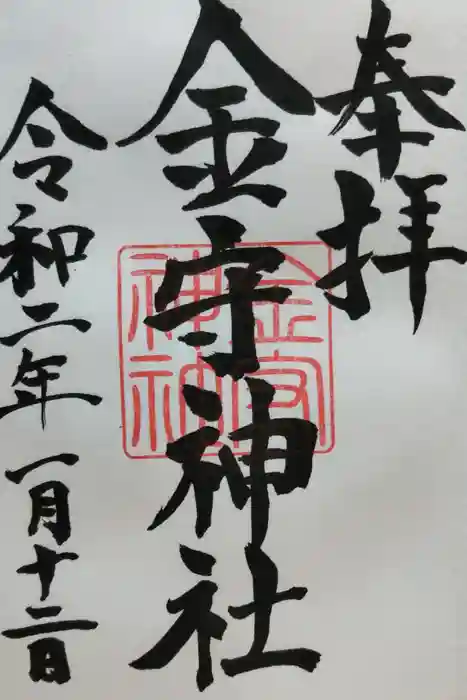 奉拝
金守神社
金守
神社
令和二年一月十二日